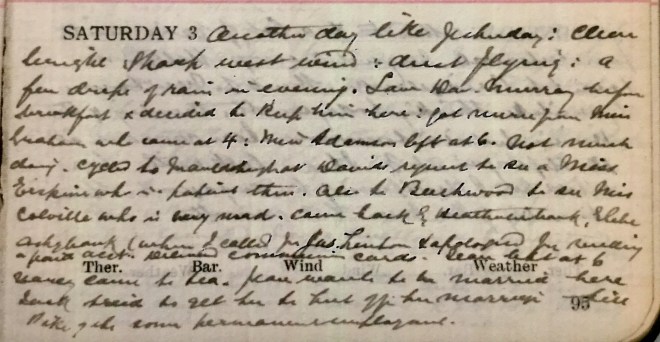 SATURDAY 3 Another day like yesterday: clear
bright sharp west wind: dust flying: a
few drops of rain in evening. Saw Dav. Murray before
breakfast & decided to keep him here: got nurse from Miss
Graham who came at 4: Miss Adamson left at 6. Not much
doing. Cycled to at Davids request to see a Miss
Erskine who is patient there. Also to Beechwood to see Miss
Colville who is very mad. Came back by
bank (when I called for Jas. & apologised for sending
a acct. communion cards. Jean left at 6
Ther. Bar. Wind Weather
came to tea. Jean wants to be married here
to get her to put off her marriage till
95
gets some permanent employment.